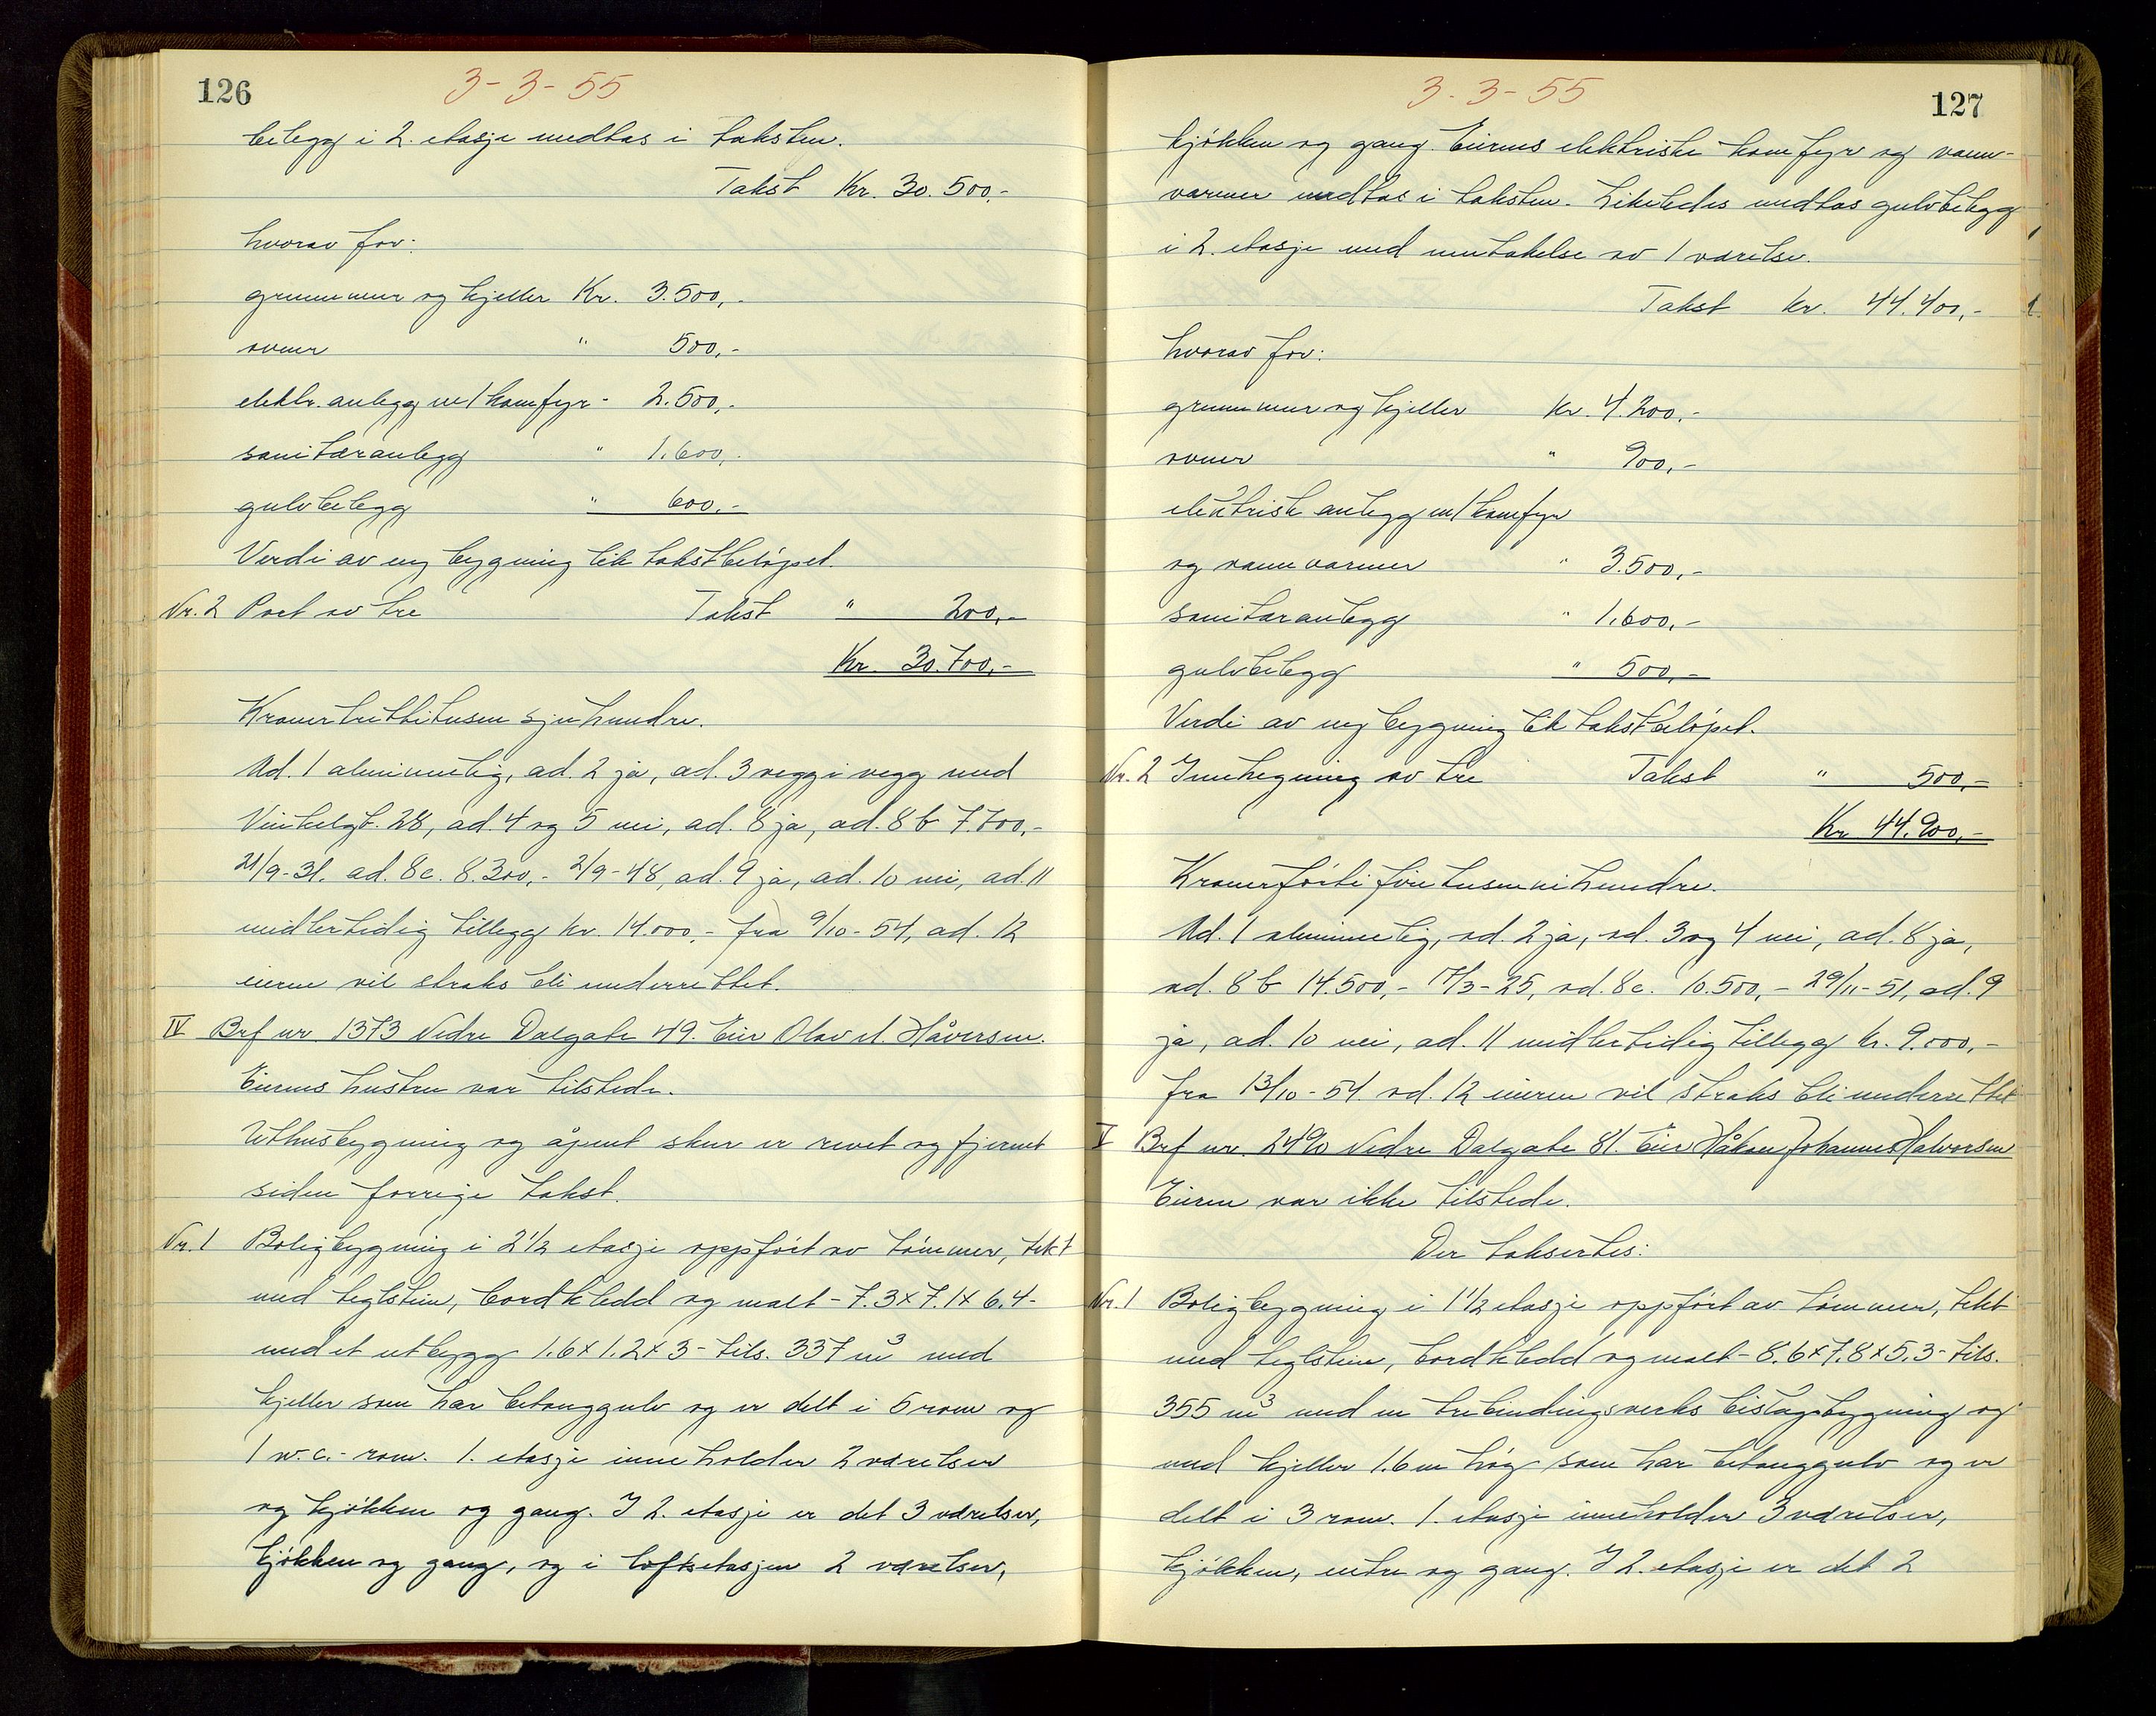 126
3-3-55
belegg i 2. etasje medtas i taksten.
Takst Kr. 30.500,-
hvorav for:
grunnmur og kjeller Kr. 3.500,-
ovner " 500,-
elektr. anlegg m/komfyr - 2.500,-
sanitæranlegg " 1.600,-
gulvbelegg " 600,-
Verdi av ny bygning lik takstbeløpet.
Nr. 2 Port av tre Takst " 200,-
Kr. 30.700,-
Kroner trettitusen sjuhundre.
Ad. 1 alminnelig, ad. 2 ja, ad. 3 vegg i vegg med
Vinkelgt. 28, ad. 4 og 5 nei, ad. 8 ja, ad. 8 b 7.700,-
21/9-31. ad. 8c. 8.300,- 2/9-48, ad. 9 ja, ad. 10 nei, ad. 11
midlertidig tillegg kr. 14.000,- fra 9/10-54, ad. 12
eieren vil straks bli underrettet.
IV Brf nr 1373 Nedre Dalgate 49. Eier Olav M. Håversen.
Eierens hustru var tilstede.
Uthusbygning og åpent skur er revet og fjernet
siden forrige takst.
Nr. 1 Boligbygning i 2 1/2 etasje oppført av tømmer, tekt
med teglstein, bordkledd og malt - 7.3 x 7.1 x 6.4 -
med et utbygg 1.6 x 1.2 x 3 - tils. 337 m3 med
kjeller som har betonggulv og er delt i 5 rom og
1 w.c.-rom. 1. etasje inneholder 2 værelser
og kjøkken og gang. I 2. etasje er det 3 værelser,
kjøkken og gang, og i loftsetasjen 2 værelser,
127
3-3-55
kjøkken og gang. Eierens elektriske komfyr og vann-
varmer medtas i taksten. Likeledes medtas gulvbelegg
i 2. etasje med unntakelse av 1 værelse.
Takst kr. 44.400,-
hvorav for:
grunnmur og kjeller kr. 4.200,-
ovner " 900,-
elektrisk anlegg m/komfyr
og vannvarmer " 3.500,-
sanitæranlegg " 1.600,-
gulvbelegg " 500,-
Verdi av ny bygning lik takstbeløpet.
Nr. 2 Innhegning av tre Takst " 500,-
Kr 44.900,-
Kroner førti fire tusen ni hundre.
Ad. 1 alminnelig, ad. 2 ja, ad. 3 og 4 nei, ad. 8 ja,
ad. 8 b 14.500,- 17/3-25, ad. 8c. 10.500,- 29/11-51, ad. 9
ja, ad. 10 nei, ad. 11 midlertidig tillegg kr. 9.000,-
fra 13/10-54. ad. 12 eieren vil straks bli underrettet
V Brf nr. 2490 Nedre Dalgate 81. Eier Håkon Johannes Halvorsen
Eieren var ikke tilstede.
Der taksertes:
Nr. 1 Boligbygning i 1 1/2 etasje oppført av tømmer, tekt
med teglstein, bordkledd og malt - 8.6 x 7.8 x 5.3 - tils.
355 m3 med en trebindingsverks bislagsbygning og
med kjeller 1.6 m høg som har betonggulv og er
delt i 3 rom. 1. etasje inneholder 3 værelser,
kjøkken, entre og gang. I 2. etasje er det 2